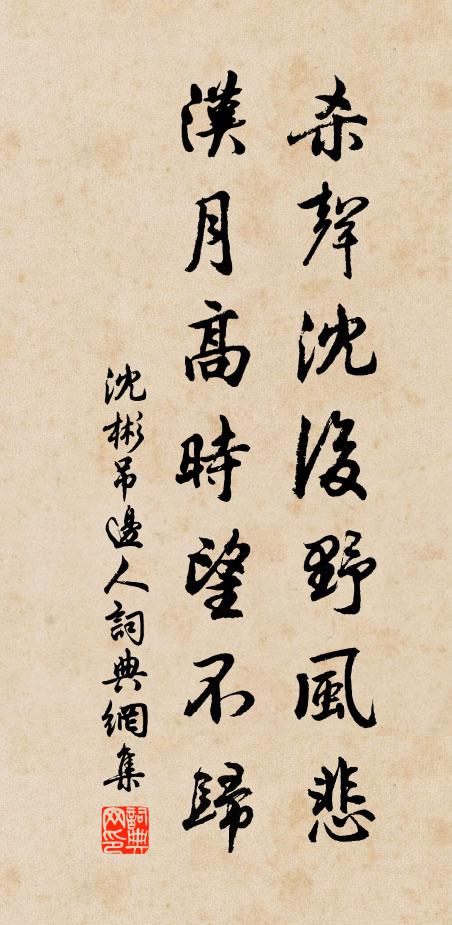 杀聲沈後野風悲
漢月高時望不歸
沈彬吊邊人詞典網集
詞典網印